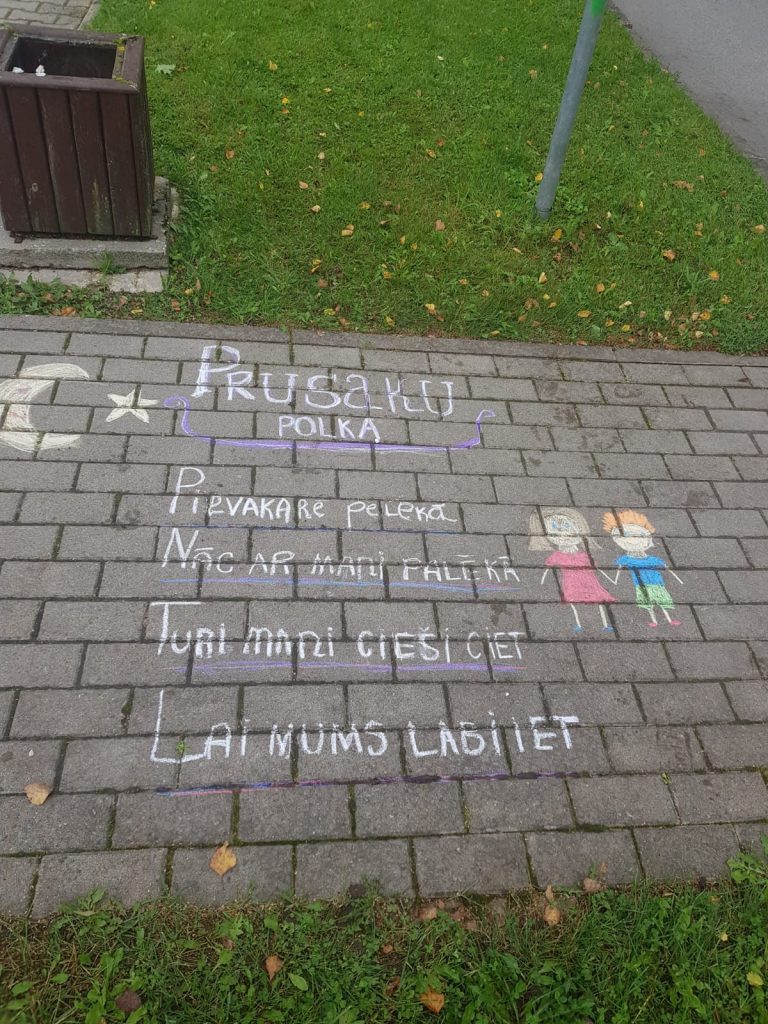 PRUSAKU
POLKA
PIEVAKARE PELEKA
NĀC AR MANI PALĒKĀ
TURI MANI CIEŠI CIET
LAI MUMS LABI IET